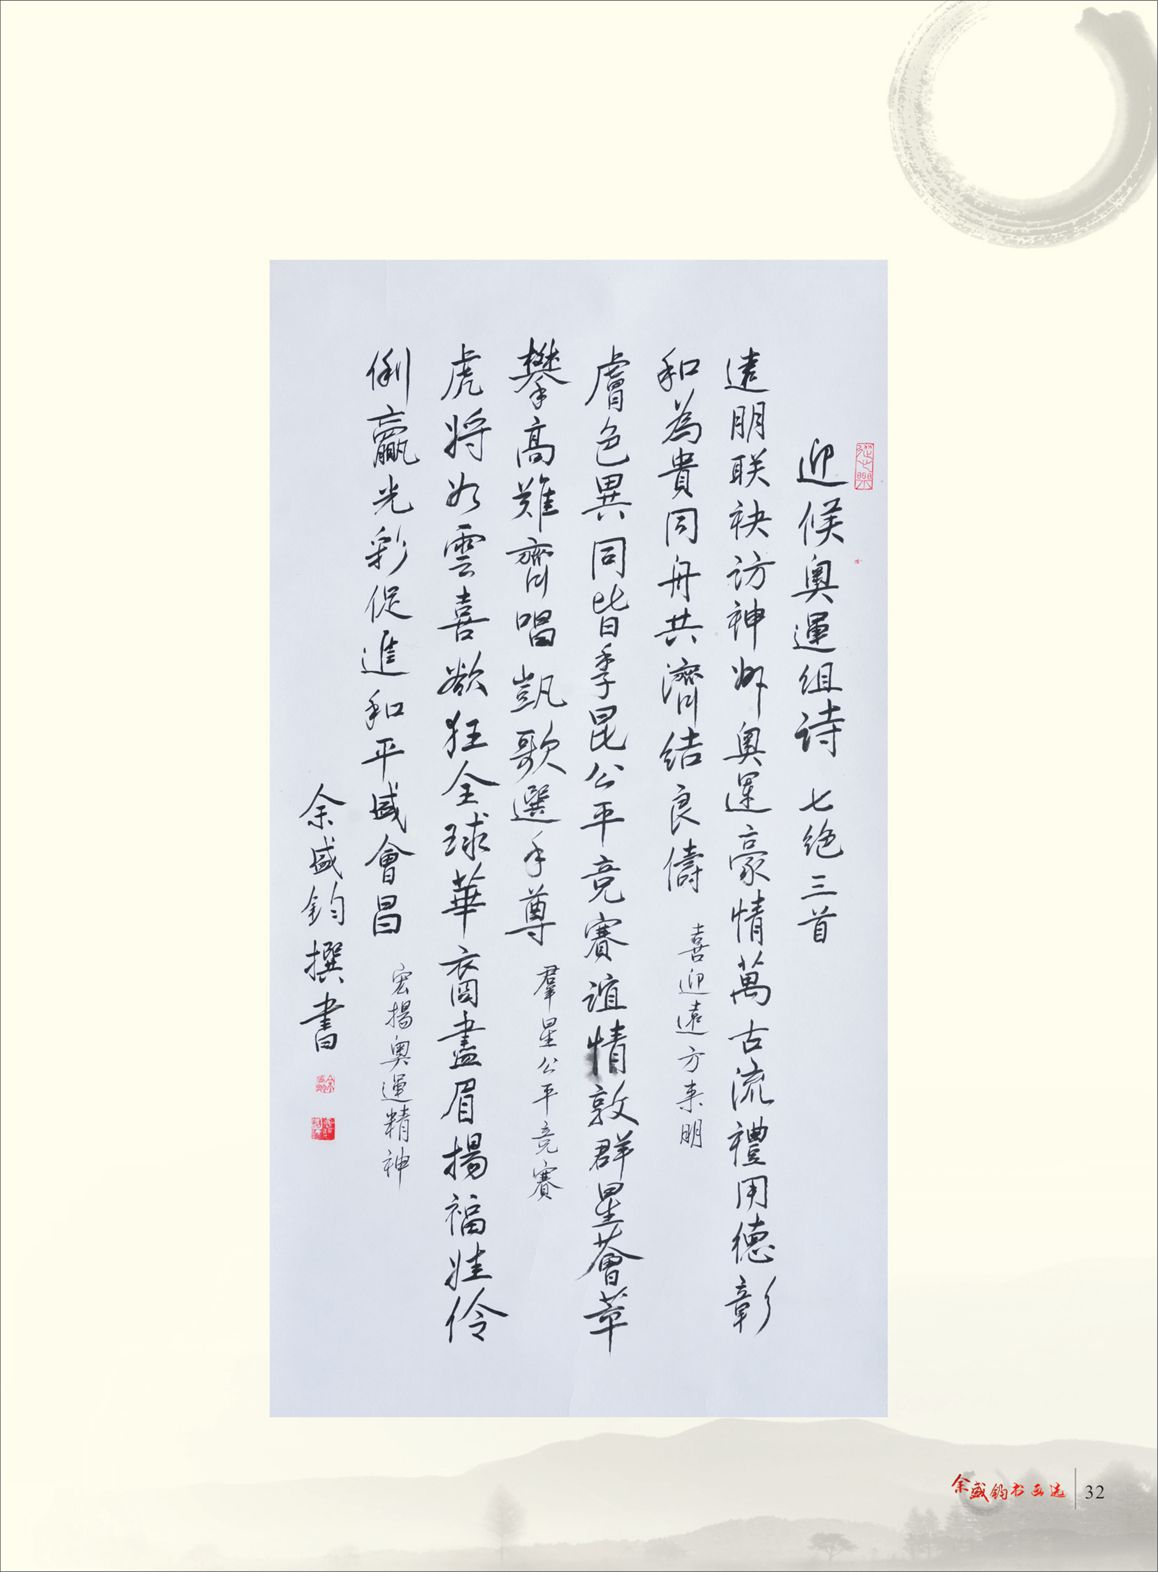 迎候奧運组诗 七绝三首
遠朋联袂访神州奥運豪情萬古流禮用德彰
和為貴同舟共濟结良儔 喜迎遠方来朋
膚色異同皆季昆公平竞赛谊情敦群星薈萃
攀高难齊唱凱歌選手尊 羣星公平竞赛
虎将如雲喜欲狂全球華裔盡眉揚福娃伶
俐赢光彩促進和平盛會昌 宏揚奥運精神
余盛鈞撰書
余盛钧书画选 32